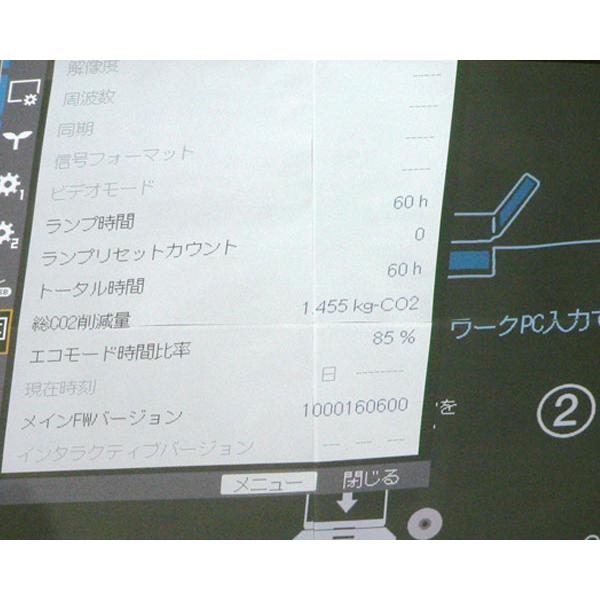 解像度 -----
周波数 -----
同期 -----
信号フォーマット -----
ビデオモード
ランプ時間 60 h
ランプリセットカウント 0
トータル時間 60 h
総CO2削減量 1.455 kg-CO2
エコモード時間比率 85 %
現在時刻 日 --------
メインFWバージョン 1000160600
インタラクティブバージョン -- -- --
メニュー 閉じる
1
2
ワークPC入力で
を
2